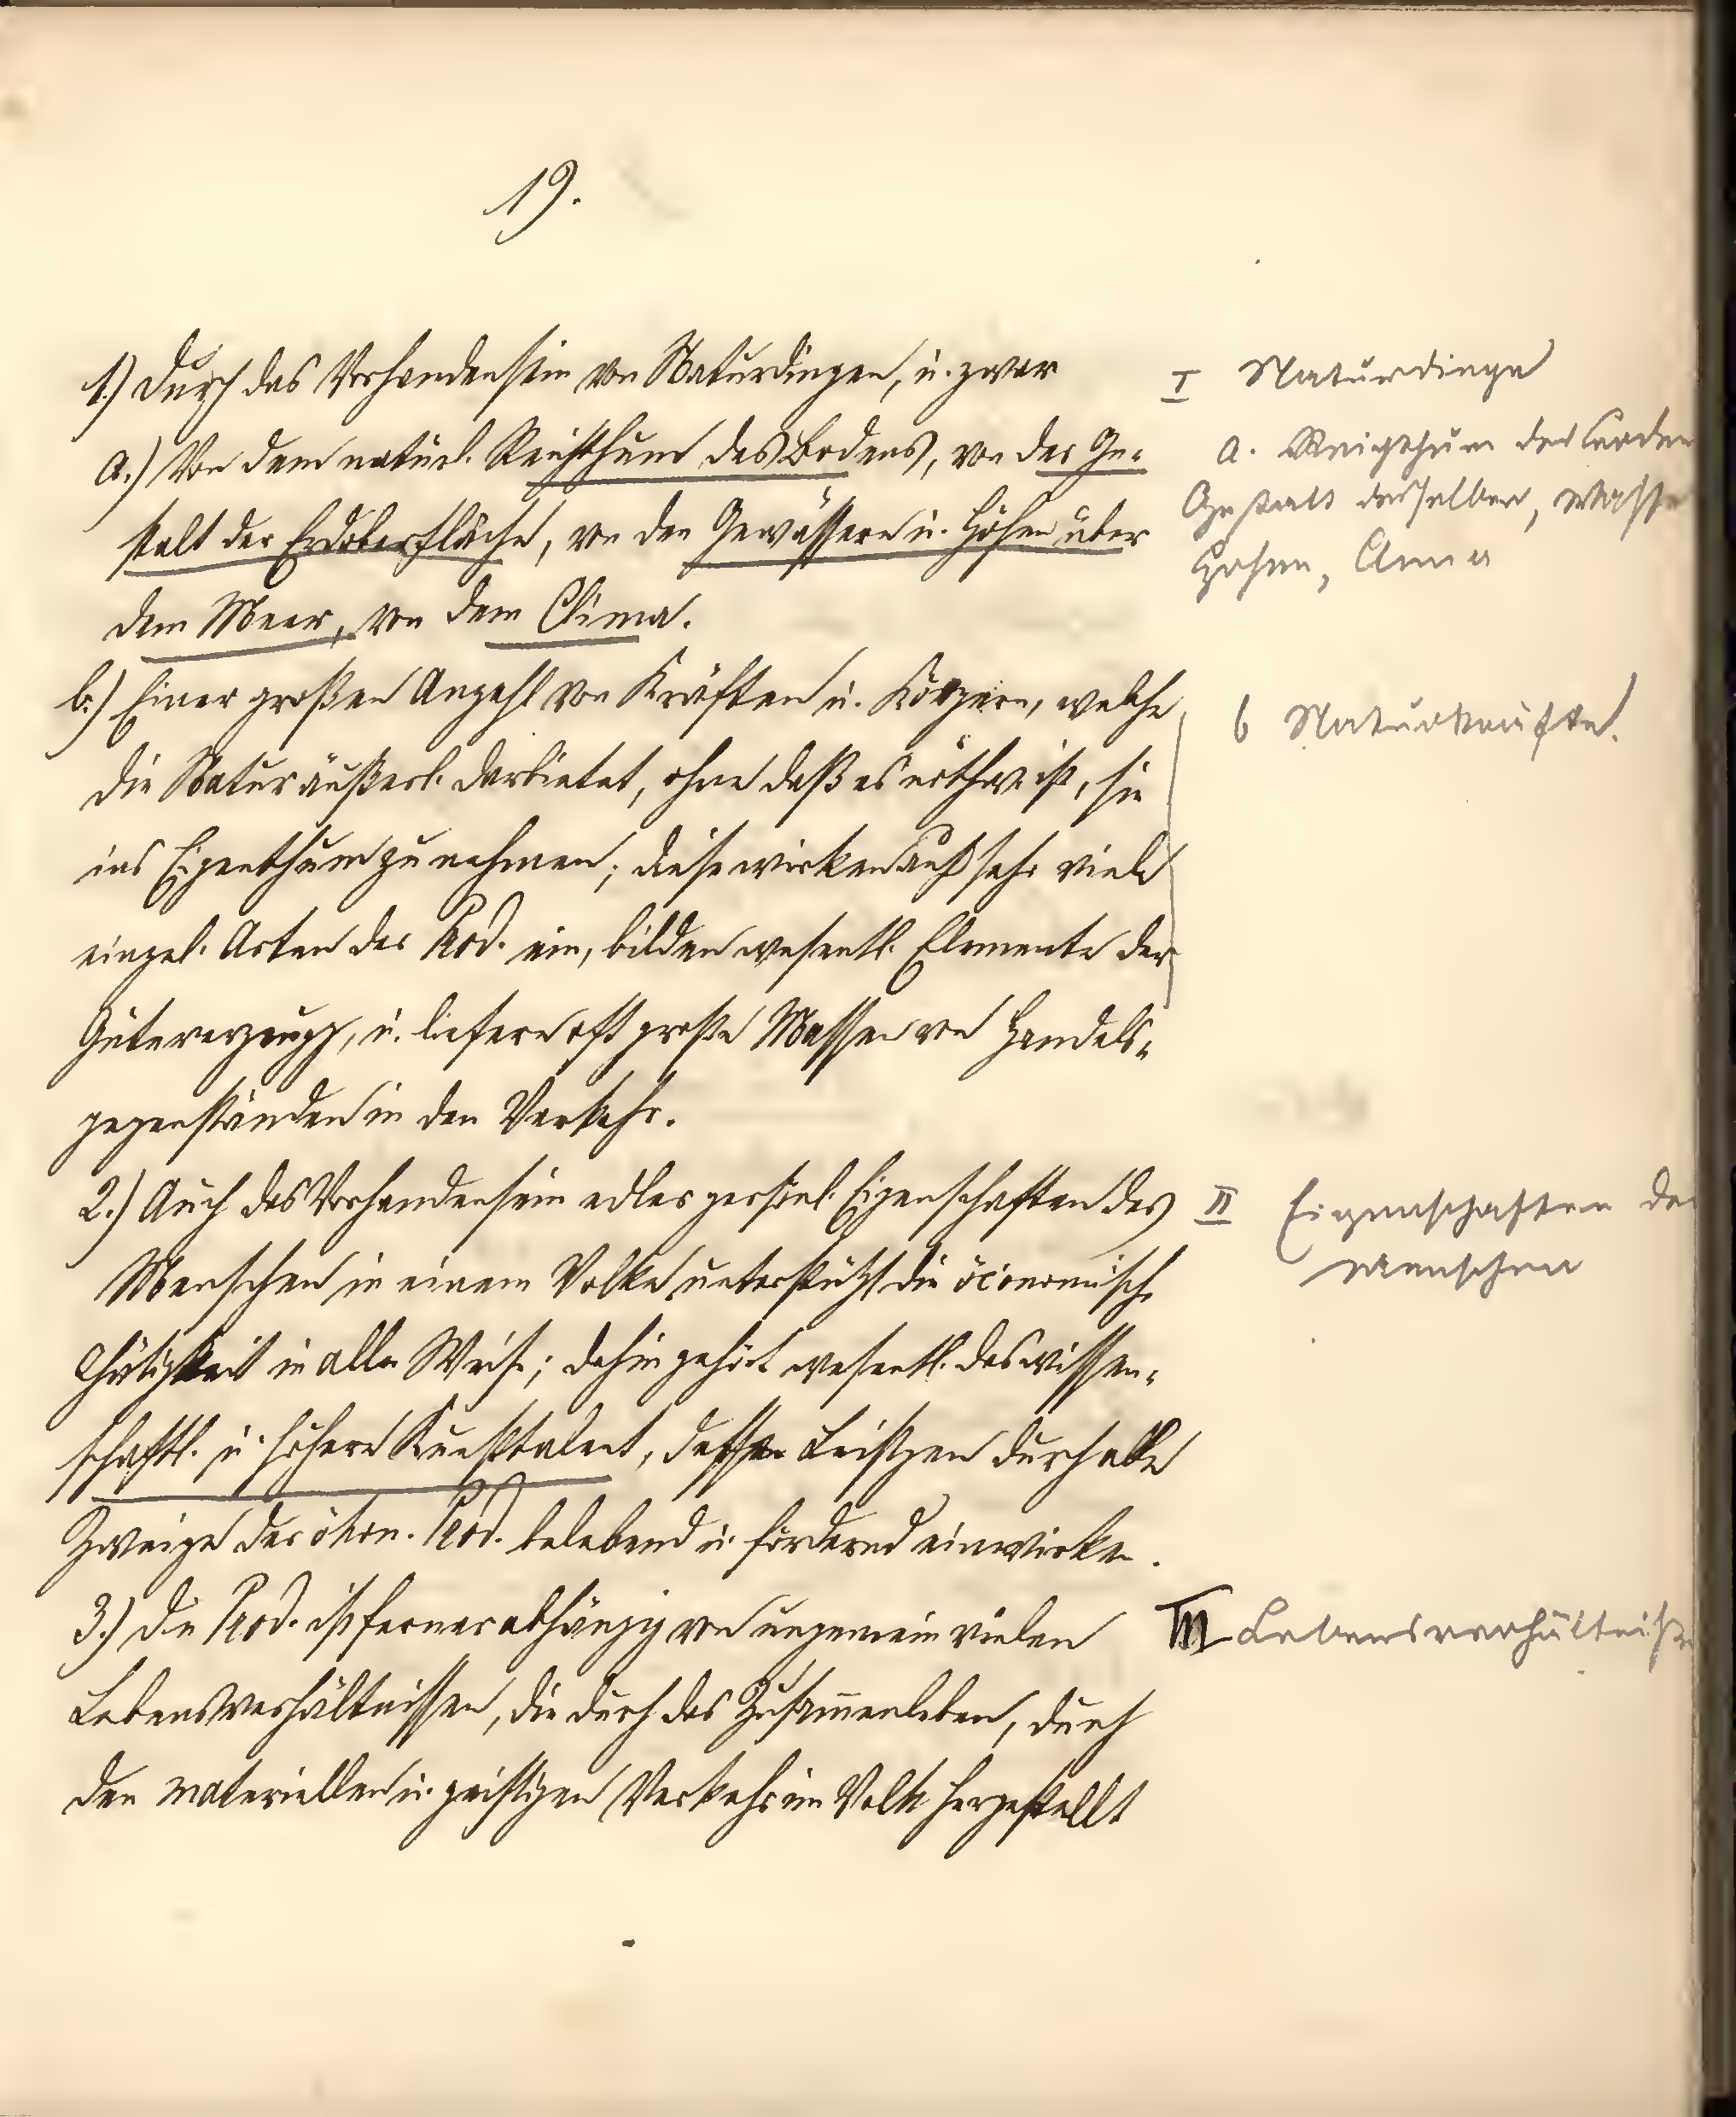 19.
1.) Durch das Vorhandensein von Naturdingen, u. zwar
a.) Von dem natürl. Reichthum des Bodens, von der Ge-
stalt der Erdoberfläche, von den Gewässern u. Höhen über
dem Meer, von dem Clima.
b.) Einer großen Anzahl von Kräften u. Körpern, welche
die Natur äußerl. darbietet, ohne daß es nöthw. ist, sie
ins Eigenthum zu nehmen; diese wirken auf sehr viele
einzel. Arten der Prod. ein, bilden wesentl. Elemente der
Gütererzeugg, u. liefern oft große Massen von Handels-
gegenständen in den Verkehr.
2.) Auch das Vorhandensein edler persönl. Eigenschaften des
Menschen in einem Volke unterstützt die öconomische
Thätigkeit in aller Weise; dahin gehört wesentl. das wissen-
schaftl. u. höhere Kunsttalent, dessen Leistgen durch alle
Zweige der ökon. Prod. belebend u. fördernd einwirken.
3.) Die Prod. ist ferner abhängig von ungemein vielen
Lebensverhältnissen, die durch das Zusam̄enleben, durch
den materiellen u. geistigen Verkehr im Volk hergestellt
I Naturdinge
a. Reichthum des Bodens
Gestalt desselben, Wasser
Höhen, Clima
b Naturkräfte.
II Eigenschaften des
Menschen
III Lebensverhältnisse